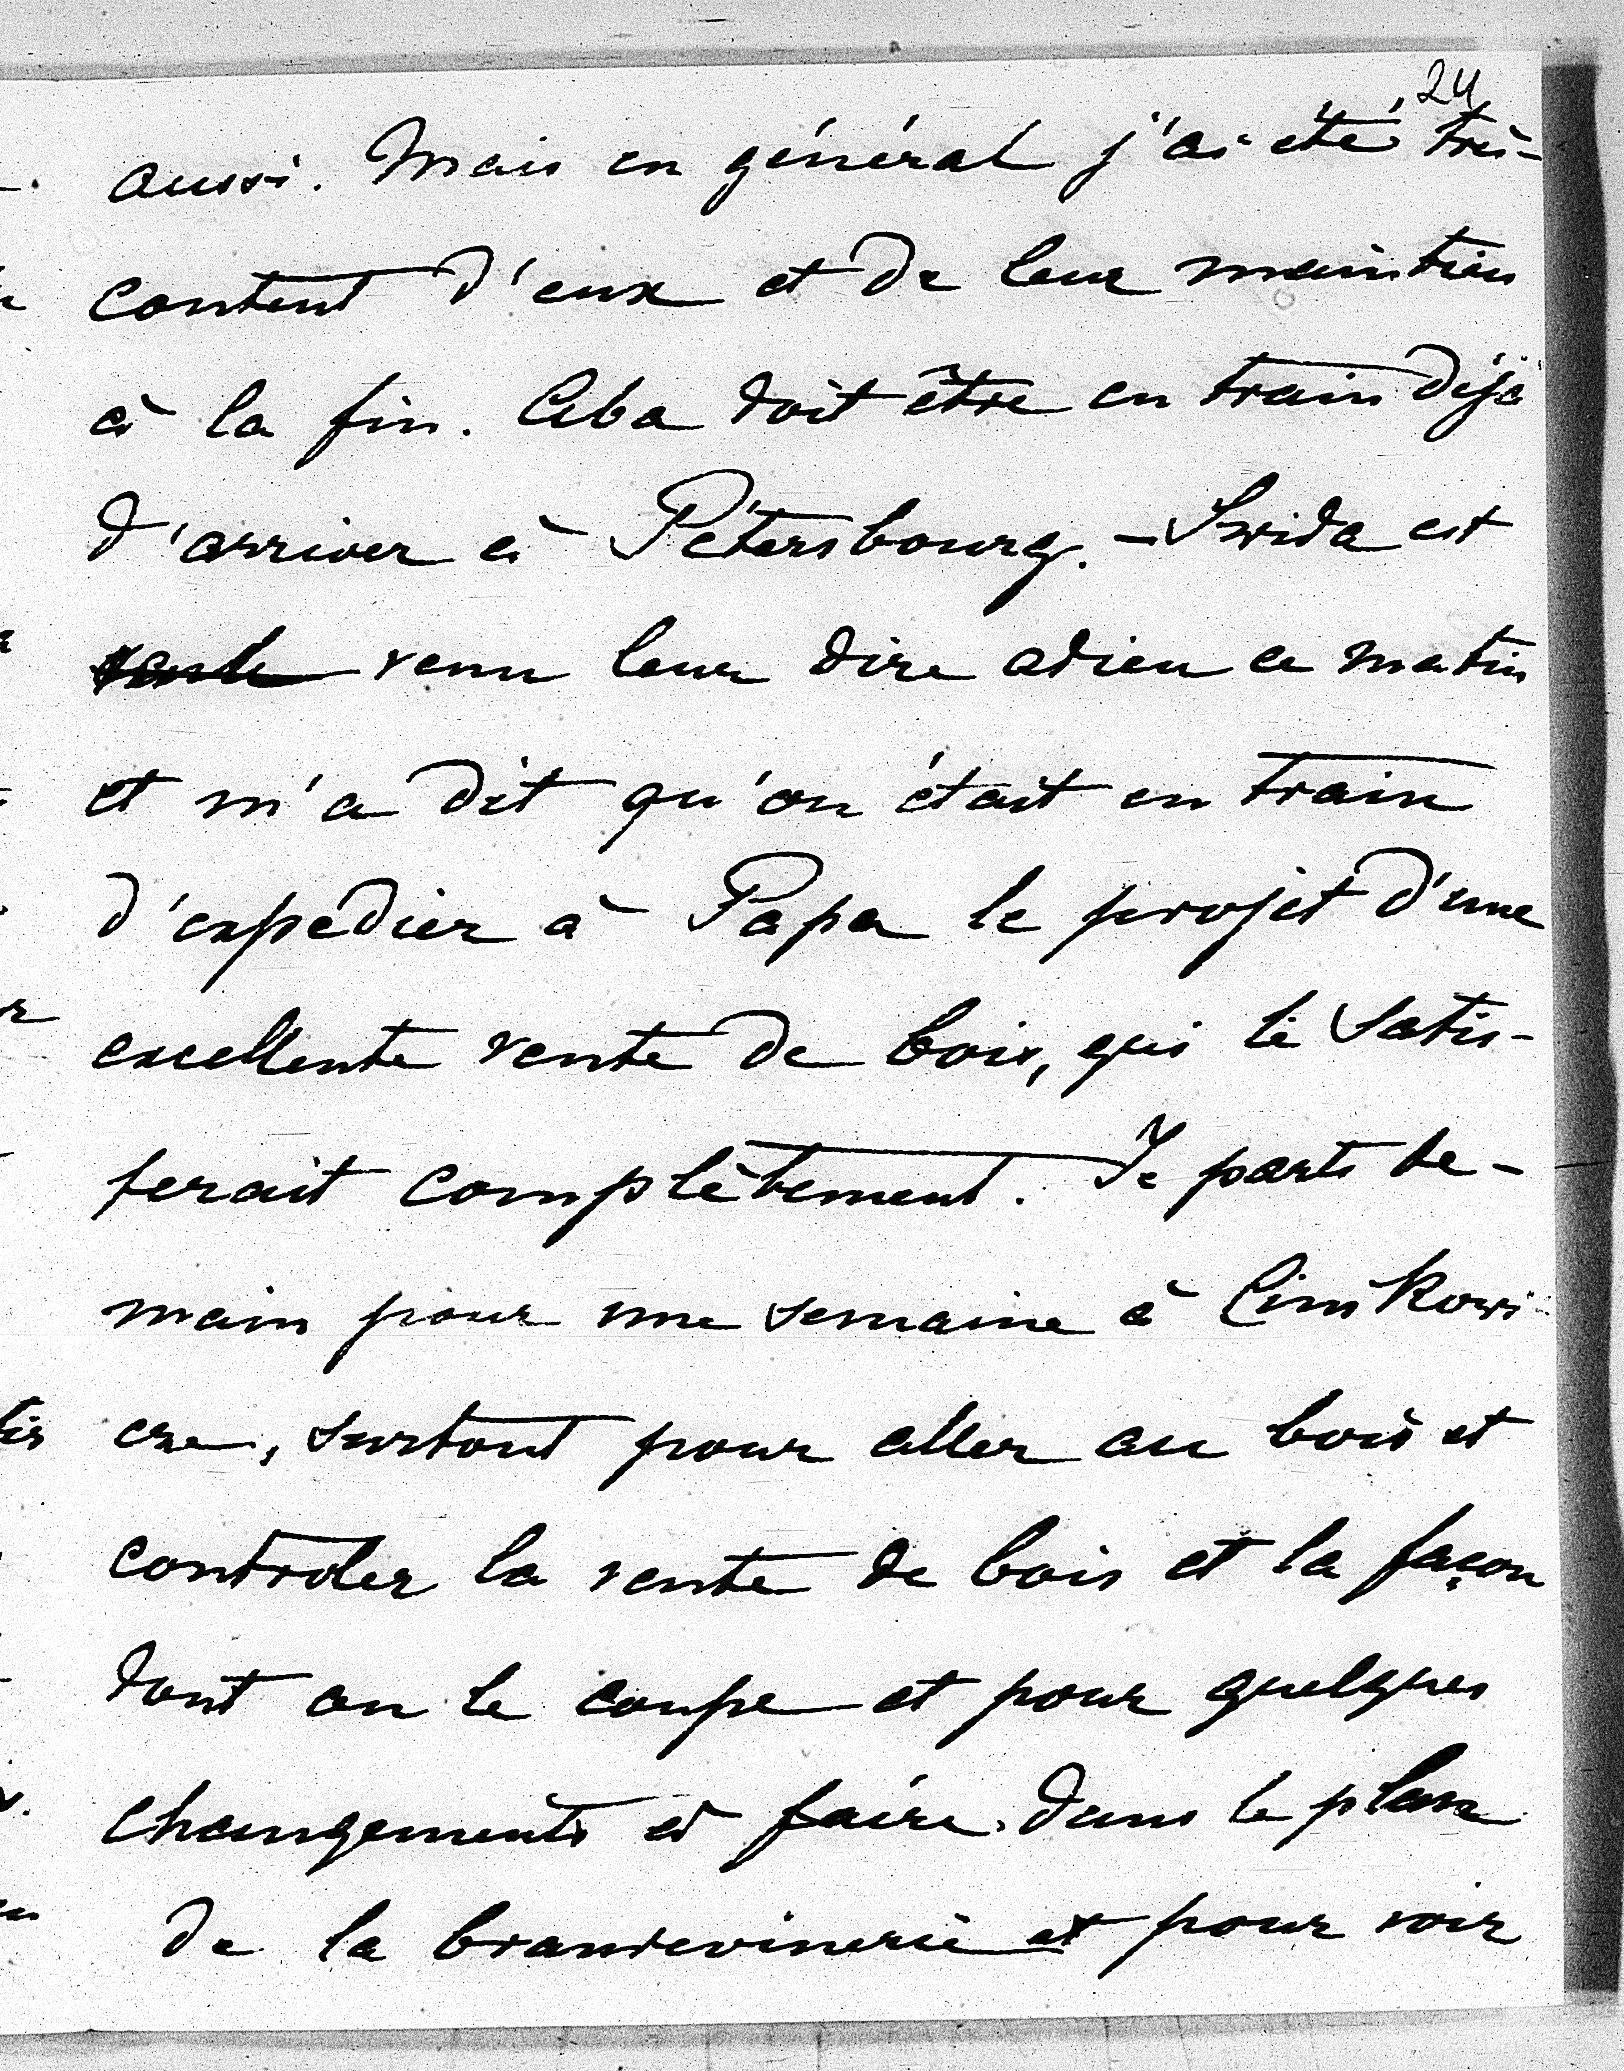 24
aussi. Mais en général j'ai été très-
content d'eux et de leur maintien
à la fin. Aba doit être en train déjà
d'arriver à Pétersbourg. – Swida est
venu leur dire adieu ce matin
et m'a dit qu'on était en train
d'expédier à Papa le projet d'une
excellente vente de bois, qui le satis-
ferait complètement. Je parts de-
main pour une semaine à Cimkowi-
cze, surtout pour aller au bois et
controler la vente de bois et la façon
dont on le coupe et pour quelques
changements à faire dans le plan
de la brandevinerie et pour voir